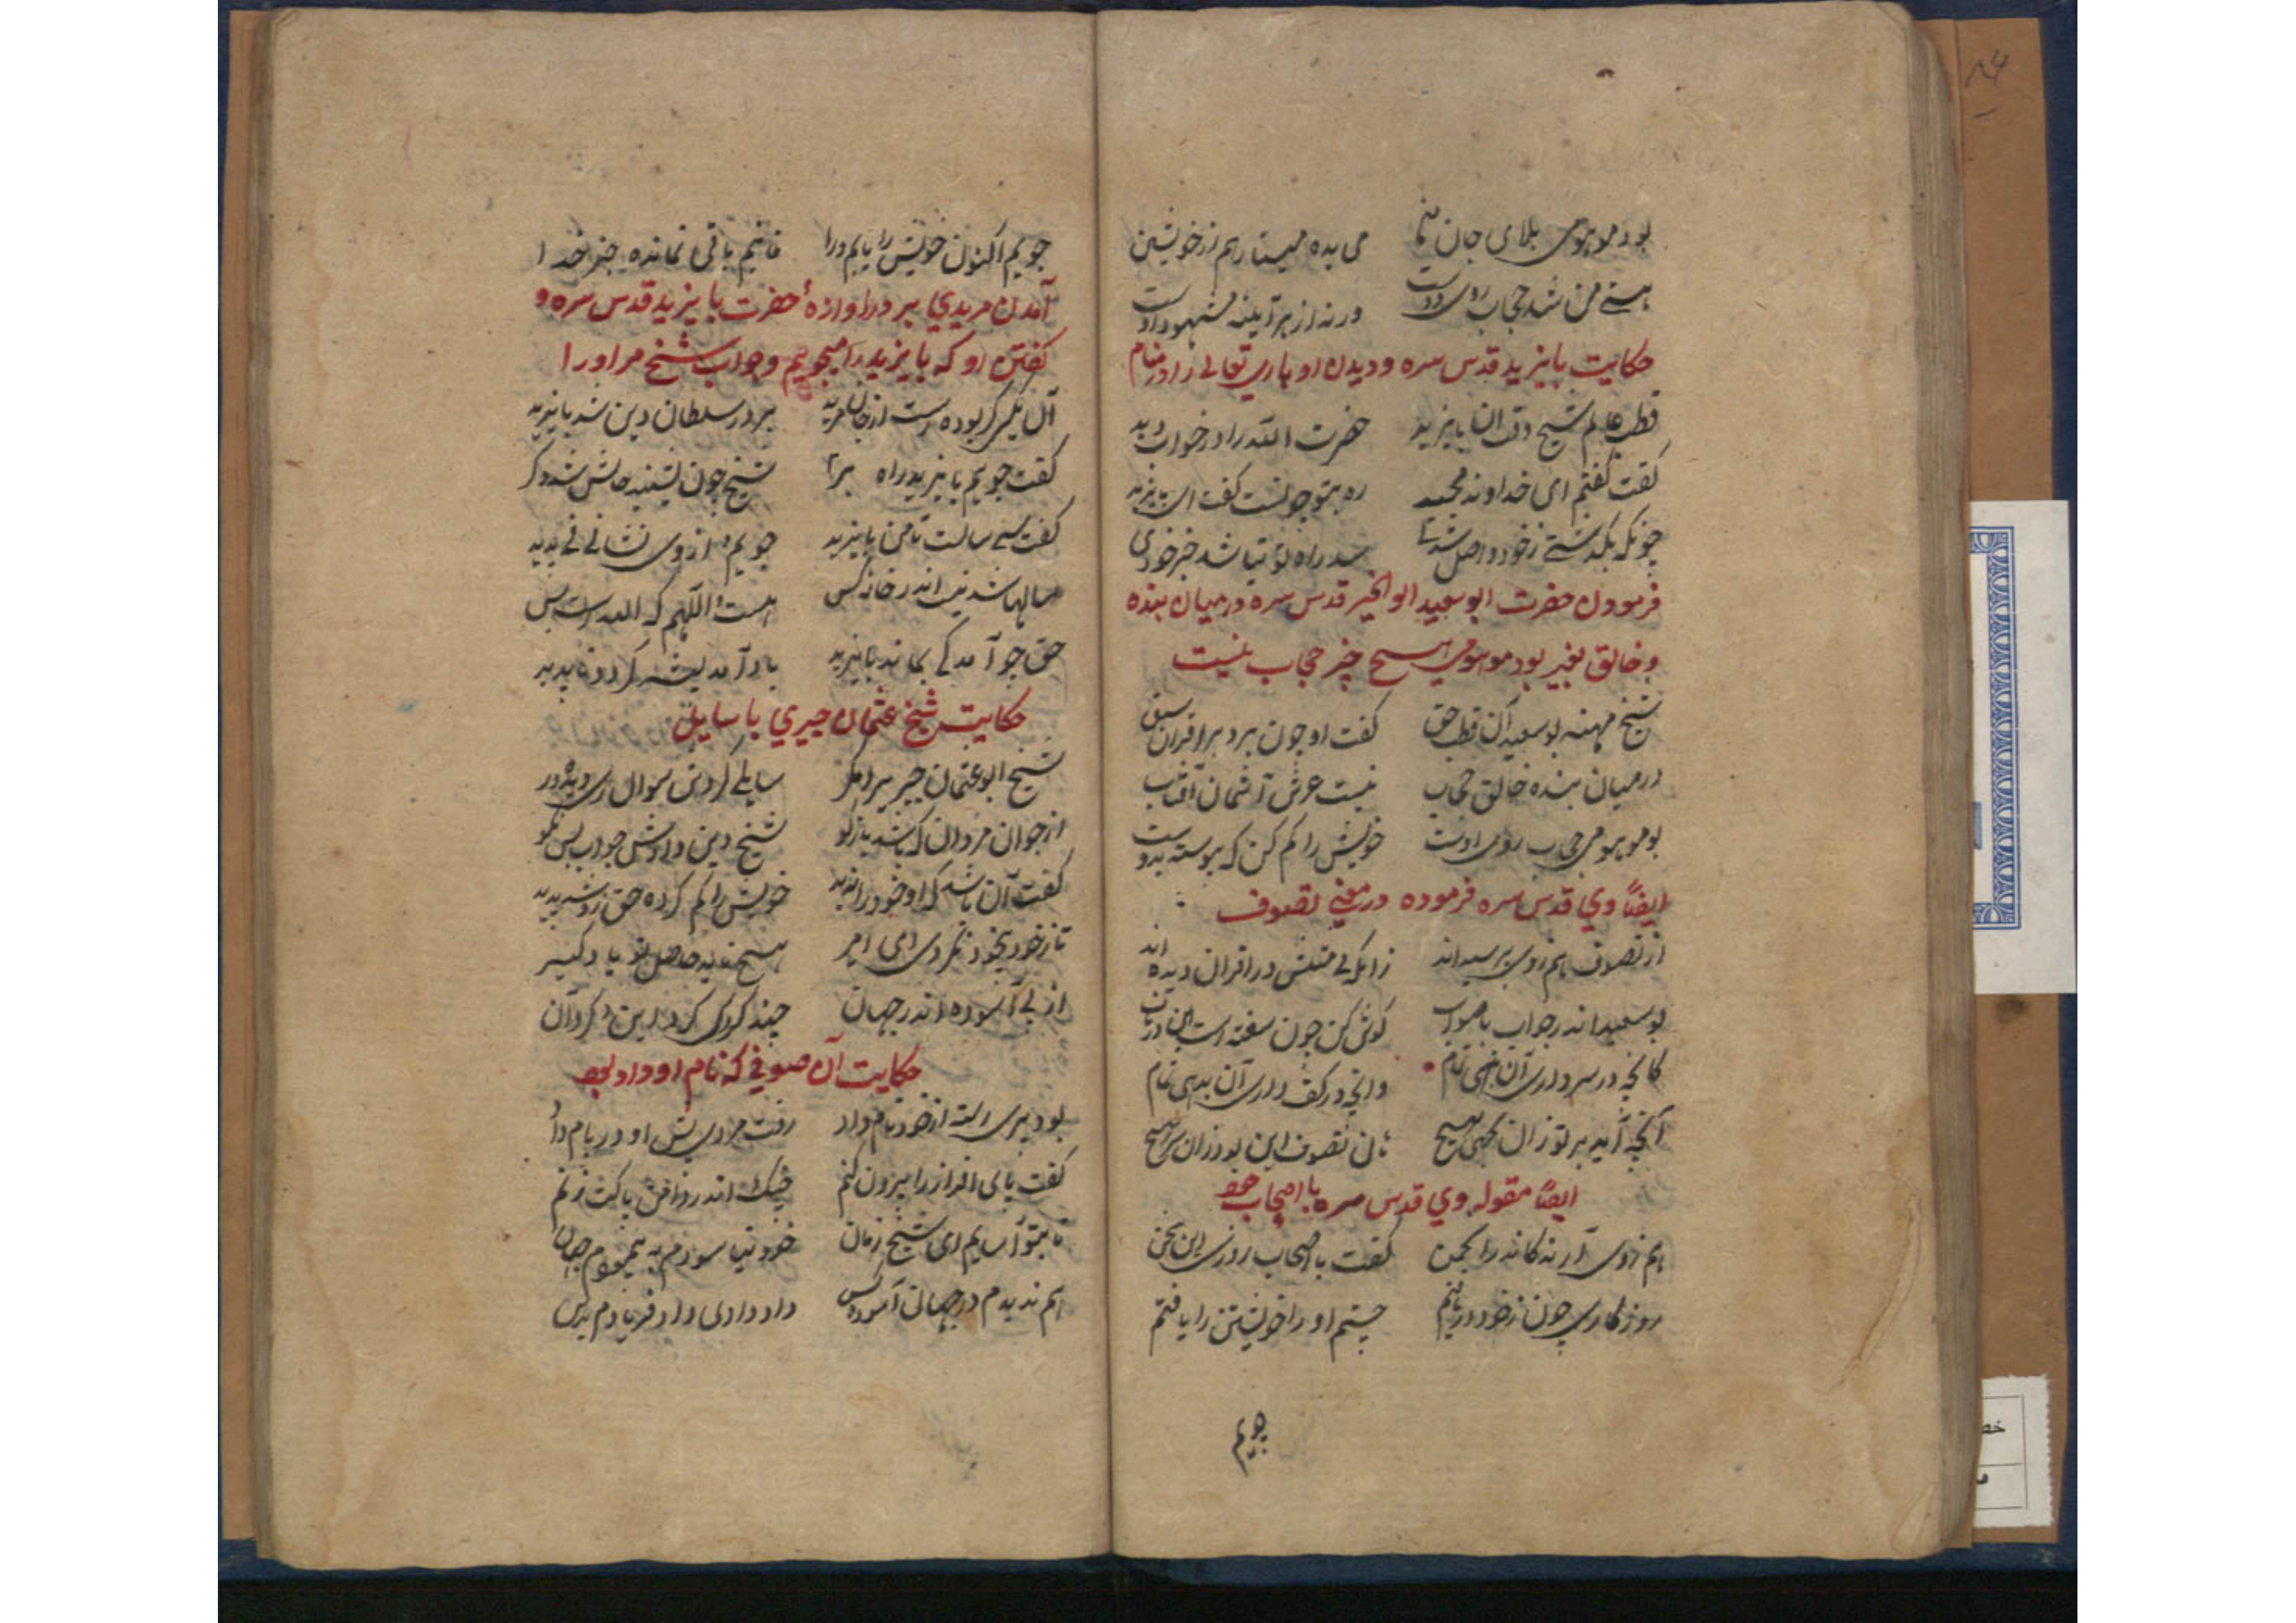 بود موهومی بلای جان می بده مینا رهم از خویشتن
هستی من شد حجاب روی دوست ورنه از هر آینه مشهود اوست
حکایت بایزید قدس سره و دیدن او باری تعالی را در منام
قطب عالم شیخ وقت ان بایزید حضرت الله را در خواب دید
گفت گفتم ای خداوند مجید ره بتو چونست گفت ای بایزید
چونکه بگذشتی ز خود واصل شدی سد راه تو نباشد جز خودی
فرمودن حضرت ابو سعید ابو الخیر قدس سره در میان بنده
و خالق بغیر بود موهومی هیچ چیز حجاب نیست
شیخ مهنه بو سعید آن قطب حق گفت او چون برد بر اقران سبق
در میان بنده خالق حجاب نیست عرش آسمان آفتاب
بود موهومی حجاب روی اوست خویش را کم کن که پیوسته بدوست
ایضاً وی قدس سره فرموده در معنی تصوف
از تصوف هم زوی پرسیده اند زانکه بی مثلش در اقران دیده اند
بو سعید اندر جواب با صواب گوش کن چون سفته است این در
کانچه در سر داری آن بنهی تمام وانچه در کف داری آن بدهی تمام
آنچه آید بر تو زان نجهی هیچ هان تصوف این بود زان سر مپیچ
ایضاً مقوله وی قدس سره با اصحاب خود
هم زوی آرند کاندر انجمن گفت با اصحاب روزی این سخن
روزگاری چون ز خود دریافتم جستم او را خویشتن را یافتم
جویم
جویم اکنون خویش را یابم ورا فانیم باقی نمانده جز خدا
آمدن مریدی بر در اوازهٔ حضرت بایزید قدس سره و
گفتن او که بایزید را میجویم و جواب شیخ مر او را
آن یکی کر بوده است از جان مرید بر در سلطان دین شد بایزید
گفت جویم بایزید راه بر شیخ چون بشنید حالش شد دگر
گفت سی سالست تا من بایزید جویم و از وی نشانی نی پدید
سالها شد نیست اندر خانه کس هست واللهم که الله است بس
حق چو آمد کی بماند بایزید باد آمد پشه گردد ناپدید
حکایت شیخ عثمان حیری با سایل
شیخ ابو عثمان حیر سایلی کردش سوال
از جوان مردان که باشد بازگو شیخ دین دادش جواب بس نکو
گفت آن باشد که او خود را ندید خویش را کم کرده حق زو شد پدید
تا ز خود بیخود نگردی ای امیر هیچ ناید حاصل تو یاد گیر
از پی آسوده اندر جهان چند گردی گرد این و گرد آن
حکایت آن صوفی که نام او داد بود
بود پیری از خود نام داد رفت مردی پیش او در بام داد
گفت پای افزار را بیرون کنم خویش اندر دامن پاکت زنم
تا بتو آسایم ای شیخ زمان خود نیاسودم به پیمودم جهان
هم ندیدم در جهان آسوده کس داد دادی داد فریادم برس